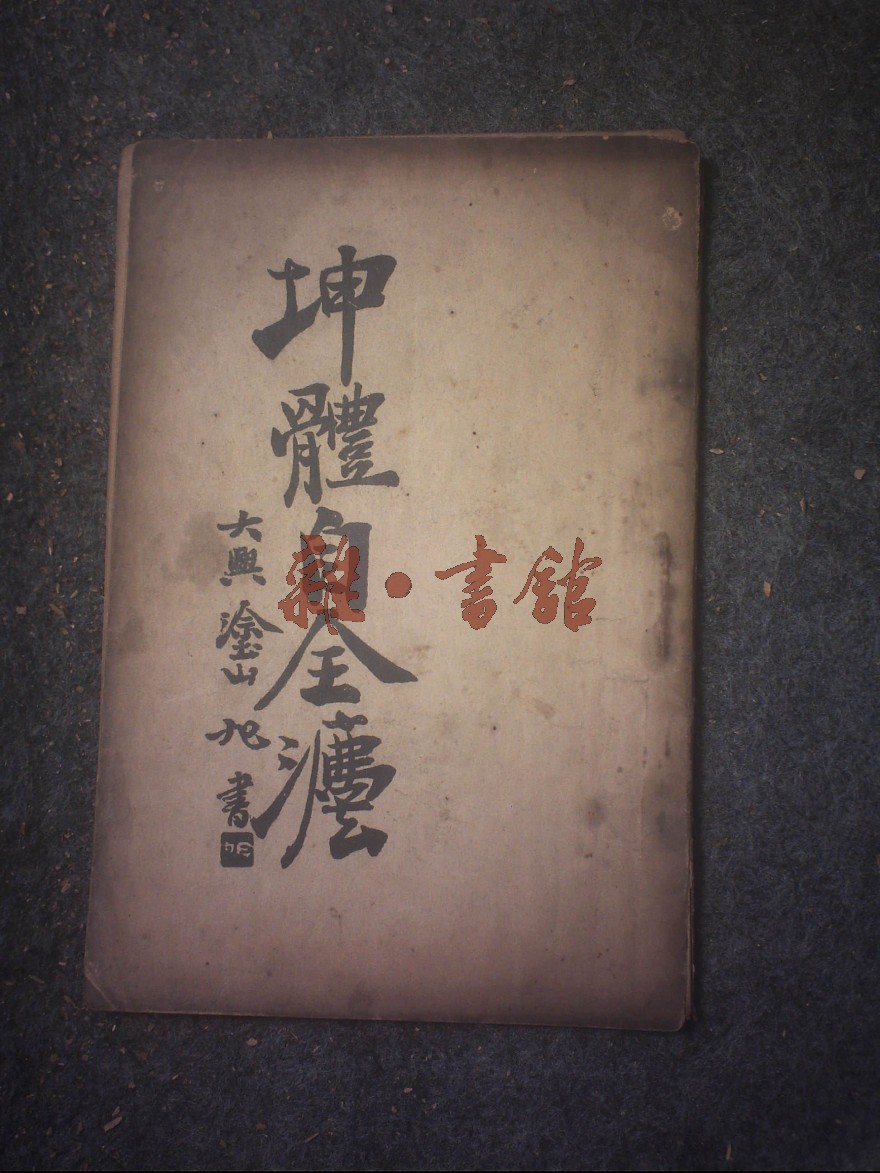 坤體自全灋
大興 塗山 旭 書
雜·書館